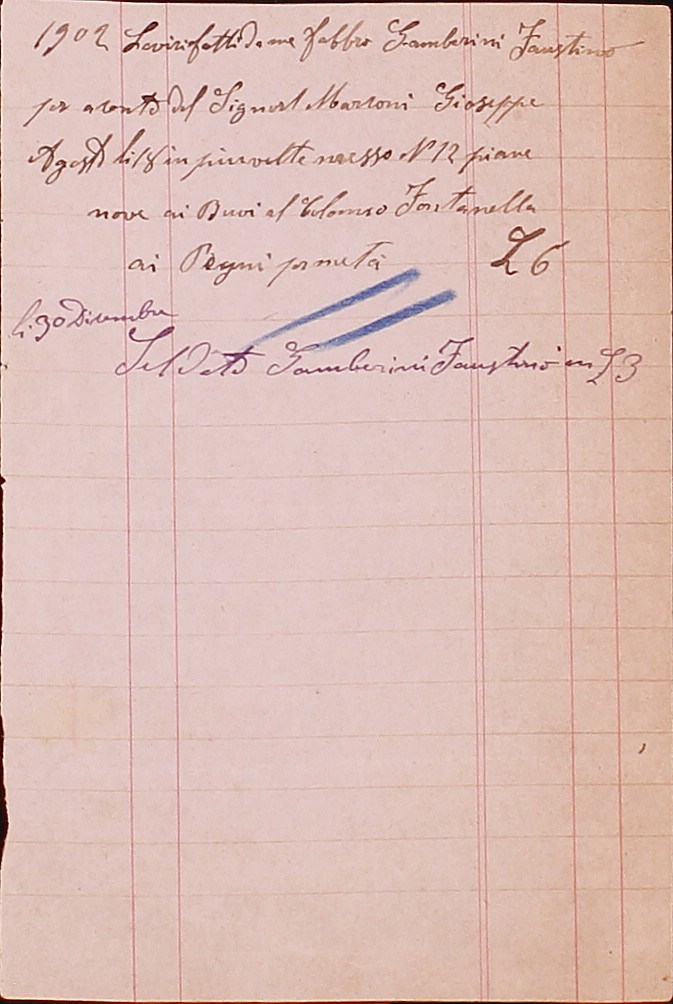 1902 Lavirifatti da me fabbro Gamberini Faustino
per aconto del Signorl Marconi Giuseppe
Agosto li 18 in piuvolte messo N 12 piane
nove ai Buvi al Colono Fontanella
ai Pegni pr metà L 6
li 30 Dicembre
Sel Deto Gamberini Faustino in L 3